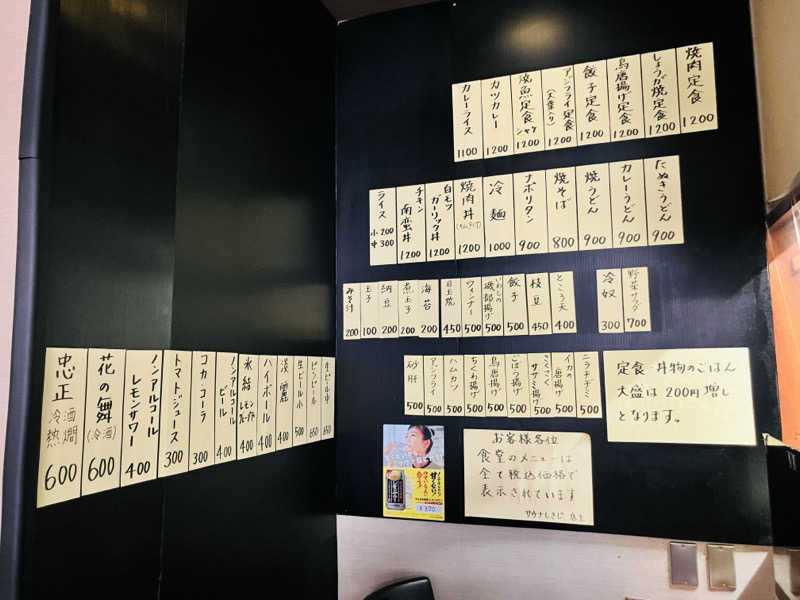 焼肉定食 1200
しょうが焼定食 1200
鳥唐揚げ定食 1200
餃子定食 1200
アジフライ定食 (大葉入り) 1200
焼魚定食 シャケ 1200
カツカレー 1200
カレーライス 1100
たぬきうどん 900
カレーうどん 900
焼うどん 900
焼そば 800
ナポリタン 900
冷麺 1000
焼肉丼 1200
白モツガーリック丼 1200
チキン南蛮丼 1200
ライス 小200 中300
野菜サラダ 700
冷奴 300
ところ天 400
枝豆 450
餃子 500
いわしの磯部揚げ 500
ウィンナー 500
目玉焼 450
海苔 200
煮玉子 200
納豆 200
玉子 100
みそ汁 200
ニラチヂミ 500
イカの唐揚げ 500
さくさくササミ揚げ 500
ごぼう揚げ 500
鳥唐揚げ 500
ちくわ揚げ 500
ハムカツ 500
アジフライ 500
砂肝 500
定食・丼物のごはん
大盛は200円増し
となります。
お客様各位
食堂のメニューは
全て税込価格で
表示されています
サウナしきじ 店主
生ビール中 650
ビンビール 650
生ビール小 500
淡麗 400
ハイボール 400
氷結 レモン グレープフルーツ 400
ノンアルコールビール 400
コカ・コーラ 300
トマトジュース 300
ノンアルコールレモンサワー 400
花の舞 (冷酒) 600
忠正 冷酒 熱燗 600